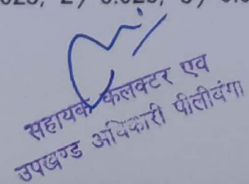 सहायक कलक्टर एव
उपखण्ड अधिकारी पीलीवंगा